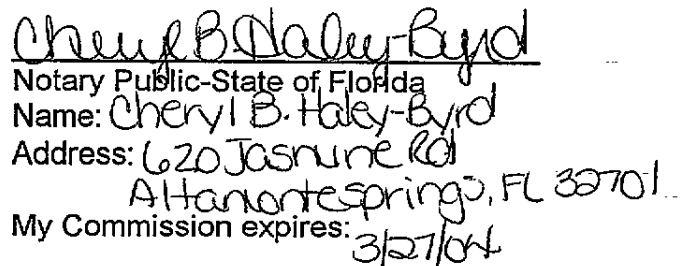 Cheryl B. Haley-Byrd
Notary Public-State of Florida
Name: Cheryl B. Haley-Byrd
Address: 620 Jasmine Rd
Altamonte springs, FL 32701
My Commission expires: 3/27/04